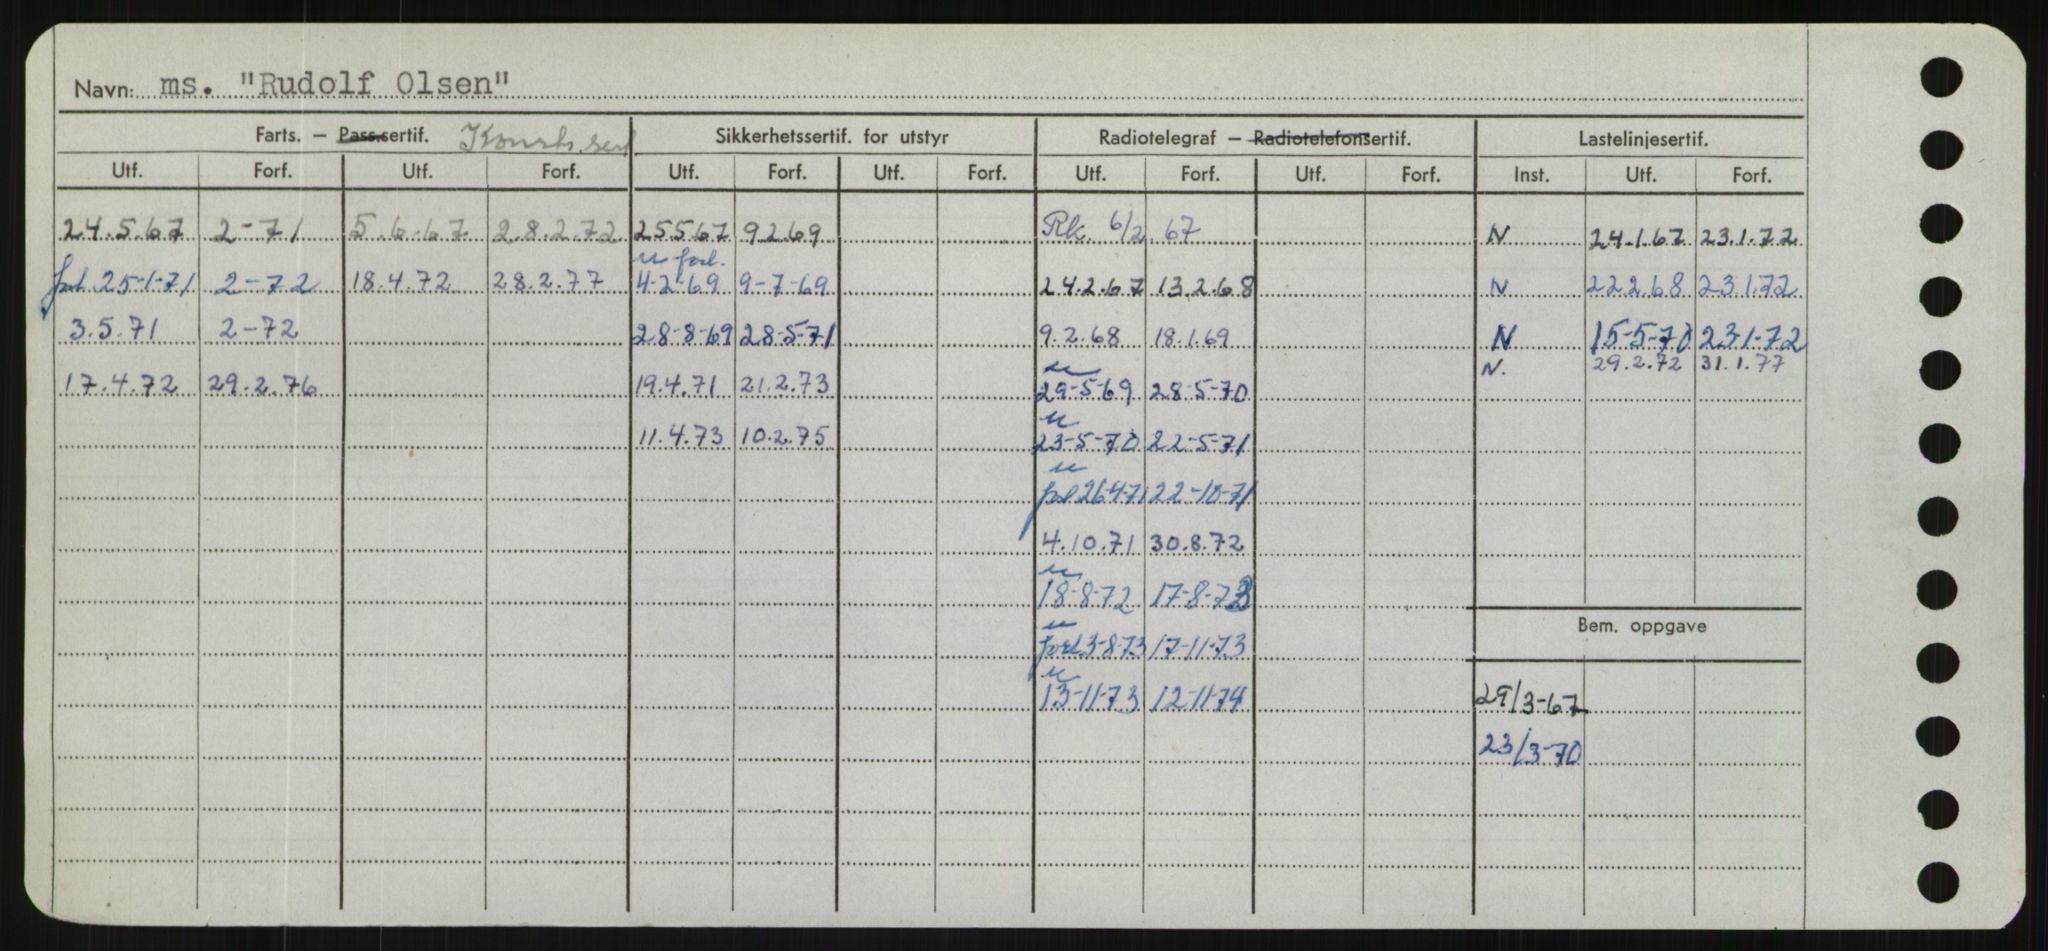 Navn: ms. "Rudolf Olsen"
Farts. – Pass.sertif. Konstr. sert Sikkerhetssertif. for utstyr Radiotelegraf – Radiotelefonsertif. Lastelinjesertif.
Utf. Forf. Utf. Forf. Utf. Forf. Utf. Forf. Utf. Forf. Utf. Forf. Inst. Utf. Forf.
24.5.67 2-71 5.6.67 28.2.72 25567 9269 Rk 6/2 67 N 24.1.67 23.1.72
u forl.
forl 25-1-71 2-72 18.4.72 28.2.77 4-2-69 9-7-69 24.2.67 13.2.68 N 22268 23172
3.5.71 2-72 28-8-69 28-5-71 9.2.68 18.1.69 N 15-5-70 231-72
u N. 29.2.72 31.1.77
17.4.72 29.2.76 19.4.71 21.2.73 29-5-69 28-5-70
u
11.4.73 10.2.75 23-5-70 22-5-71
u
forl 26471 22-10-71
4.10.71 30.8.72
u
18-8-72 17-8-73
u
Bem. oppgave
forl 3-8-73 17-11-73
u
13-11-73 12-11-74 29/3-67
23/3-70